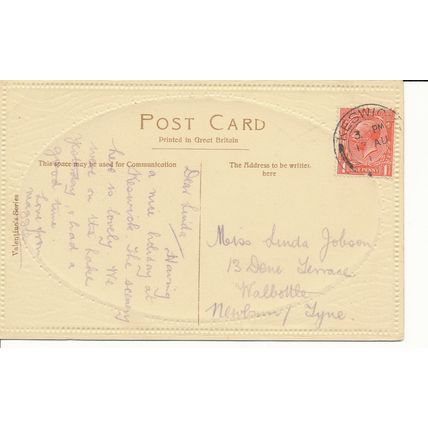 POST CARD
Printed in Great Britain
This space may be used for Communication
The Address to be written
here
Valentine's Series
KESWICK
3 PM
AU
1 PENNY 1
Dear Linda
Having
a nice holiday at
Keswick the scenery
here is lovely. We
were on the Lake
yesterday & had a
good time.
Love from
Miss Linda Jobson
13 Dene Terrace
Walbottle
Newburn / Tyne.